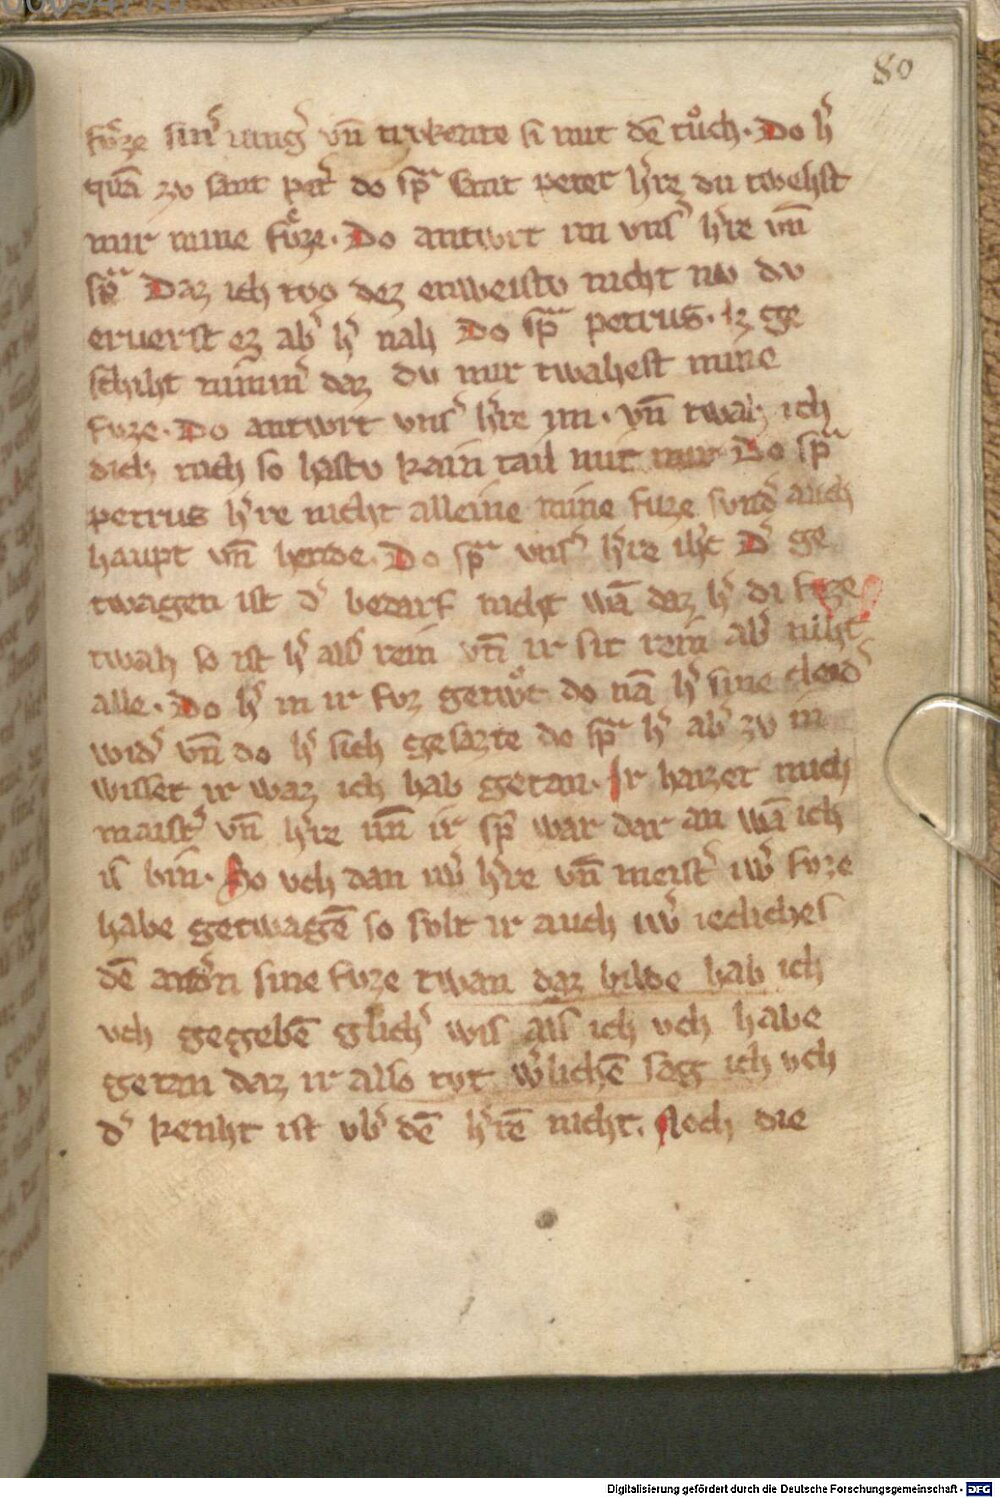 80
fvͦze sinˀ iungˀ vn̄ trvkente si mit dē tuͦch. Do hˀ
quā zv sant petˀ do spͣ sant peter hˀre du twehst
mir mine fuͤze. Do antwrt im vnsˀ hˀre vn̄
spͣ Daz ich tvo dez enweistv nicht nv dv
eruerst ez abˀ hˀ nah Do spͣ petrus. Iz ge
schiht nimmˀ daz dv mir twahest mine
fvze. Do antwrt vnsˀ hˀre im. vn̄ twah ich
dich nich so hastv kain tail mit mir Do spͣ
petrus hˀre nicht alleine mine fuze svndˀ auch
haupt vn̄ hende. Do spͣ vnsˀ hˀre ihc̄ Dˀ ge
twagen ist dˀ bedarf nicht wā daz hˀ di fvze
twah so ist hˀ alsˀ rein vn̄ ir sit rein abˀ niht
alle. Do hˀ in ir fvz getwͦc do nā hˀ sine cleidˀ
widˀ vn̄ do hˀ sich gesazte do spͣ hˀ abˀ zv in
wisset ir waz ich hab getan. Ir haizet mich
maistˀ vn̄ hˀre vn̄ ir spˀ war dar an wā ich
is bin. So vch dan iwˀ hˀre vn̄ meistˀ iwˀ fvze
habe getwagē so svlt ir auch iwˀ iecliches
dē andˀn sine fvze twan daz bilde hab ich
vch gegebē glichˀ wis als ich vch habe
getan daz ir also tvt wˀlichē sag ich vch
dˀ kenht ist vbˀ dē hˀrē nicht. Noch die
Digitalisierung gefördert durch die Deutsche Forschungsgemeinschaft - DFG